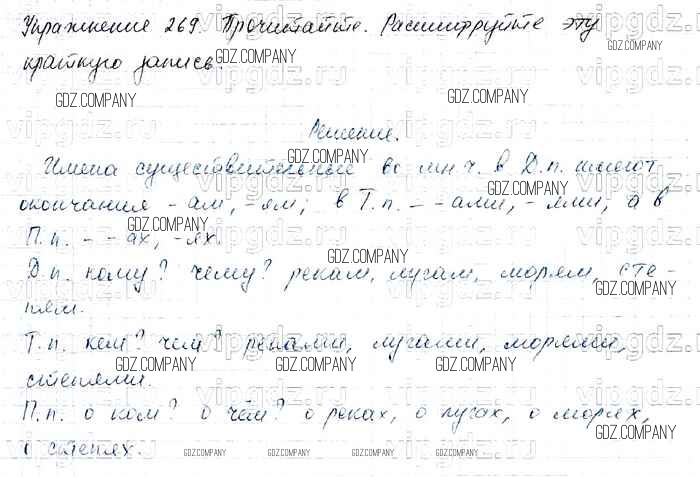 Упражнение 269. Прочитайте. Расшифруйте эту
краткую запись.
Решение.
Имена существительные во мн.ч. в Д.п. имеют
окончания -ам, -ям; в Т.п. - -ами, -ями, а в
П.п. - -ах, -ях.
Д.п. кому? чему? рекам, лугам, морям, сте-
пям.
Т.п. кем? чем? реками, лугами, морями,
степями.
П.п. о ком? о чём? о реках, о лугах, о морях,
о степях.
GDZ.COMPANY
vipgdz.ru